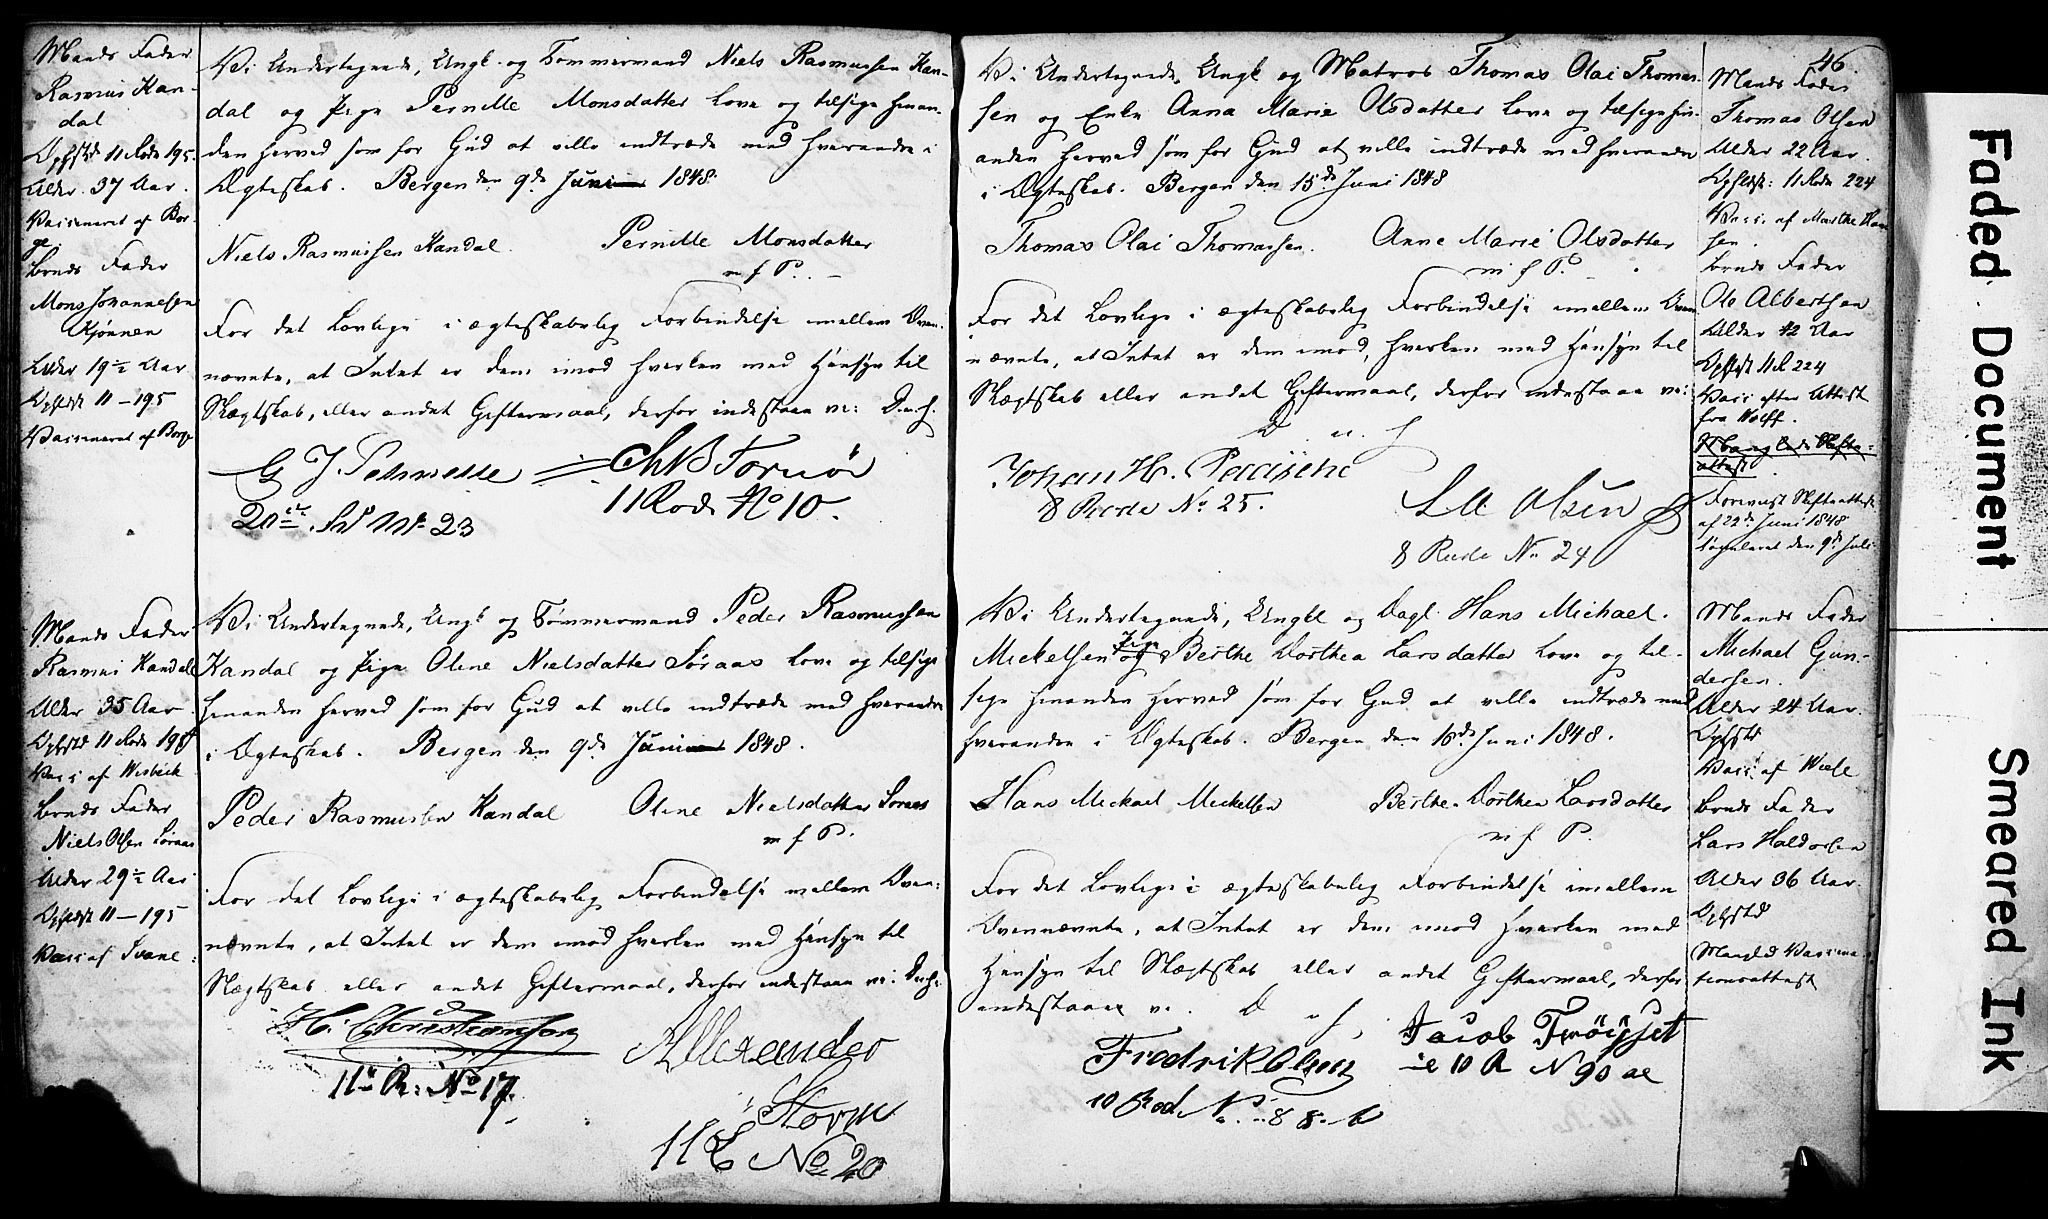 Mands Fader
Rasmus Kan-
dal
Opholdst 11 Rode 195.
Alder 37 Aar.
Vaccineret af Bor-
ge
Bruds Fader
Mons Johannesen
Kjønnen
Alder 19½ Aar
Opholdst 11 – 195
Vaccineret af Borge
Vi Undertegnede, Ungk. og Tømmermand Niels Rasmussen Kan-
dal og Pige Pernille Monsdatter love og tilsige hinan-
den herved som for Gud at ville indtræde med hverandre i
Ægteskab. Bergen den 9de Juni 1848.
Niels Rasmussen Kandal Pernille Monsdatter
m f P.
For det Lovlige i ægteskabelig Forbindelse imellem Oven-
nævnte, at Intet er dem imod hverken med Hensyn til
Slægtskab, eller andet Giftermaal, derfor indestaae vi: D. u. f.
G J Ch B Fornör
11 Rode No 10.
20de No 23
Mands Fader
Rasmus Kandal
Alder 35 Aar
Opholdst 11 Rode 195
Vacc af Wesbeck
Bruds Fader
Niels Olsen Søraas
Alder 29½ Aar
Opholdst 11 – 195
Vacc af Ivane:
Vi Undertegnede, Ungk og Tømmermand Peder Rasmussen
Kandal og Pige Olene Nielsdatter Søraas love og tilsige
hinanden herved som for Gud at ville indtræde med hverandre
i Ægteskab. Bergen den 9de Juni 1848.
Peder Rasmussen Kandal Olene Nielsdatter Søraas
m f P.
For det Lovlige i ægteskabelig Forbindelse imellem Oven-
nævnte, at Intet er dem imod hverken med Hensyn til
Slægtskab eller andet Giftermaal, derfor indestaae vi: D. u. f.
H. Christianson
11te R: No 17.
Allexander
Storm
11 R No 20
Vi Undertegnede, Ungk og Matros Thomas Olai Thomas-
sen og Enke Anna Marie Olsdatter love og tilsige hin-
anden herved som for Gud at ville indtræde med hverandre
i Ægteskab. Bergen den 15de Juni 1848
Thomas Olai Thomassen. Anne Marie Olsdatter
m f P.
For det Lovlige i ægteskabelig Forbindelse imellem Oven
nævnte, at Intet er dem imod, hverken med Hensyn til
Slægtskab eller andet Giftermaal, derfor indestaae vi:
D. u. f
Johan H.
8 Rode No 25.
Olsen
8 Rode No 24
46.
Mands Fader
Thomas Olsen
Alder 22 Aar.
Opholdst: 11 Rode 224
Vacc. af Marthe Han
sen.
Bruds Fader
Ole Albertsen
Alder 42 Aar
Opholdst 11 R 224
Vacc efter Attest
fra Wolff.
Mangl. Skifte-
attest
Forevist Skifteattest
af 22de Juni 1848
den 9de Juli
Vi Undertegnede, Ungkl og Dagl. Hans Michael
Mickelsen og Pige Berthe Dorthea Larsdatter love og til-
sige hinanden herved som for Gud at ville indtræde med
hverandre i Ægteskab. Bergen den 16de Juni 1848.
Hans Mickael Mickelsen Berthe Dorthea Larsdatter
m f P.
For det Lovlige i ægteskabelig Forbindelse imellem
Ovennævnte, at Intet er dem imod hverken med
Hensyn til Slægtskab eller andet Giftermaal, derfor
indestaaer vi. D u f.
Fredrik Olsen
10 Rod No 88. b
Jacob Fröisset
10 R N 90 ae
Mands Fader
Michael Gun-
dersen.
Alder 24 Aar.
Opholdst
Vacc. af Wiele
Bruds Fader
Lars Haldorsen
Alder 36 Aar.
Opholdst
Mangl. Vaccina-
tionsattest
Faded Document
Smeared Ink